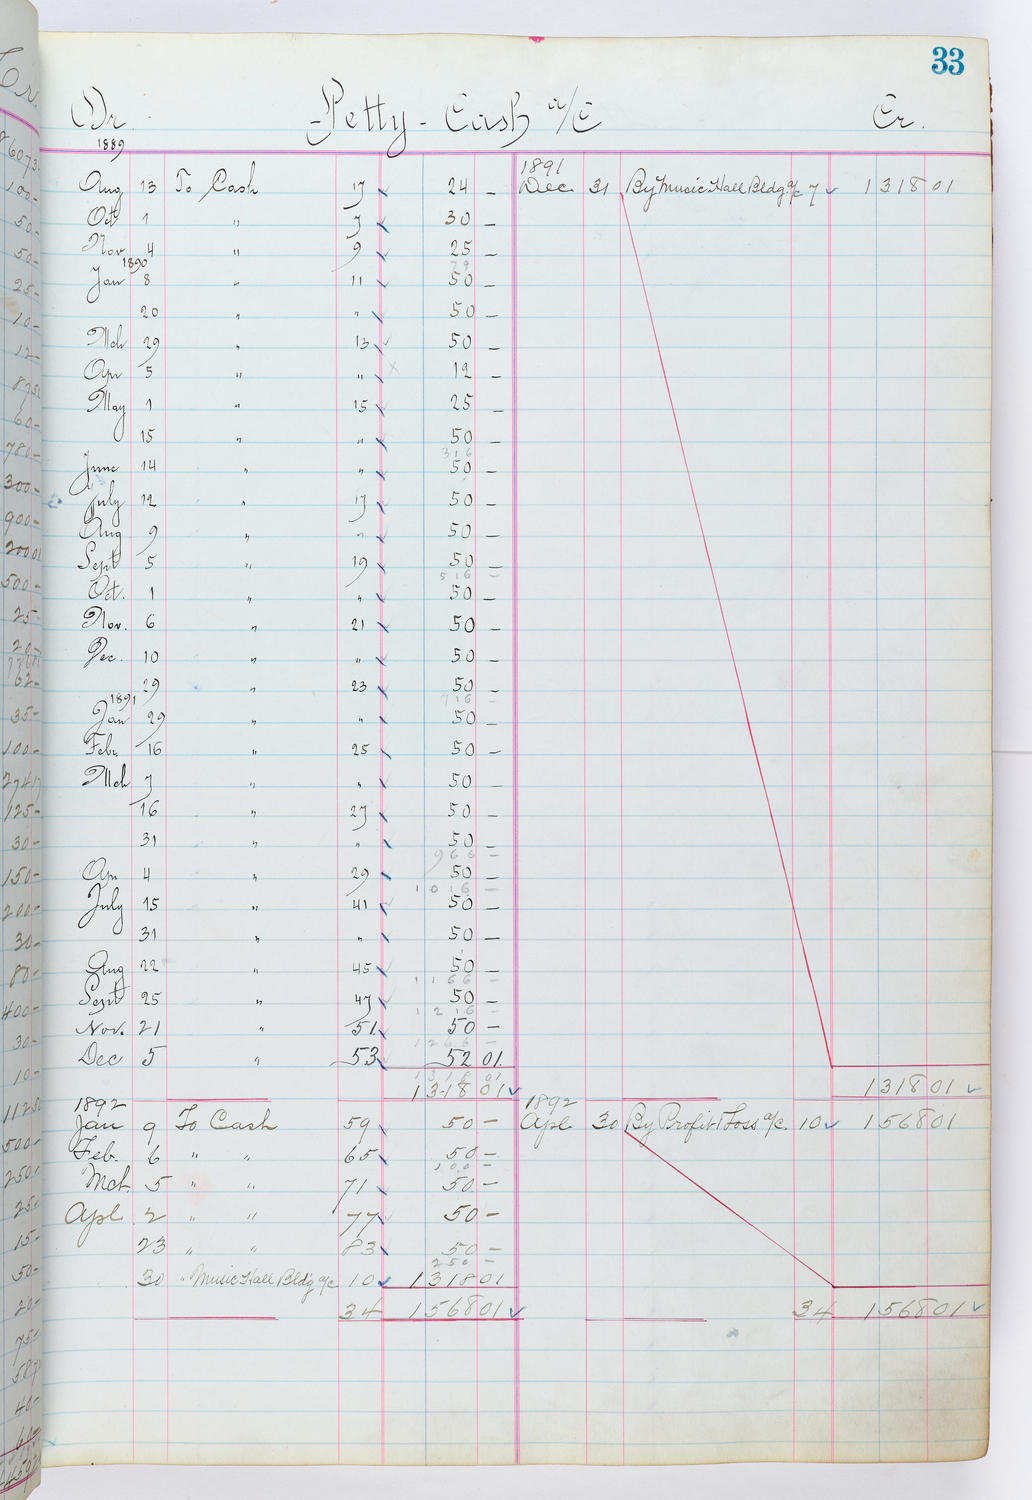 33
Dr. Petty - Cash a/c Cr.
1889 1891
Aug 13 To Cash 17 24 - Dec. 31 By Music Hall Bldg. a/c 7 1318 01
Oct 1 " 7 30 -
Nov. 4 " 9 25 -
79
1890
Jan 8 " 11 50 -
20 " " 50 -
Mch 29 " 13 50 -
Apr 5 " " 12 -
May 1 " 15 25 -
15 " " 50 -
316
June 14 " " 50 -
July 12 " 17 50 -
Aug 9 " " 50 -
Sept 5 " 19 50 -
516 -
Oct. 1 " " 50 -
Nov. 6 " 21 50 -
Dec. 10 " " 50 -
29 " 23 50 -
716 -
1891
Jan 29 " " 50 -
Feb. 16 " 25 50 -
Mch 7 " " 50 -
16 " 27 50 -
31 " " 50 -
966 -
Apr 4 " 29 50 -
1016 -
July 15 " 41 50 -
31 " " 50 -
Aug 22 " 45 50 -
1166 -
Sept 25 " 47 50 -
1216 -
Nov. 21 " 51 50 -
1266 -
Dec 5 " 53 52 01
1318 01
1318 01 1318 01
1892 1892
Jan 9 To Cash 59 50 - Apl. 30 By Profit & Loss a/c. 10 1568 01
Feb. 6 " " 65 50 -
100 -
Mch. 5 " " 71 50 -
Apl. 2 " " 77 50 -
23 " " 83 50 -
250 -
30 " Music Hall Bldg a/c 10 1318 01
34 1568 01 34 1568 01